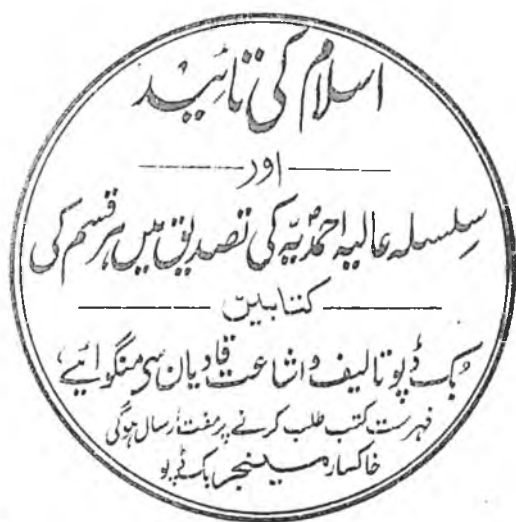 اسلام کی تائید
اور
سلسلہ عالیہ احمدیہ کی تصدیق میں ہر قسم کی
کتابیں
بک ڈپو تالیف و اشاعت قادیان سی منگوائیے،
فہرست کتب طلب کرنے پر مفت ارسال ہوگی
خاکسار مینیجر بک ڈپو